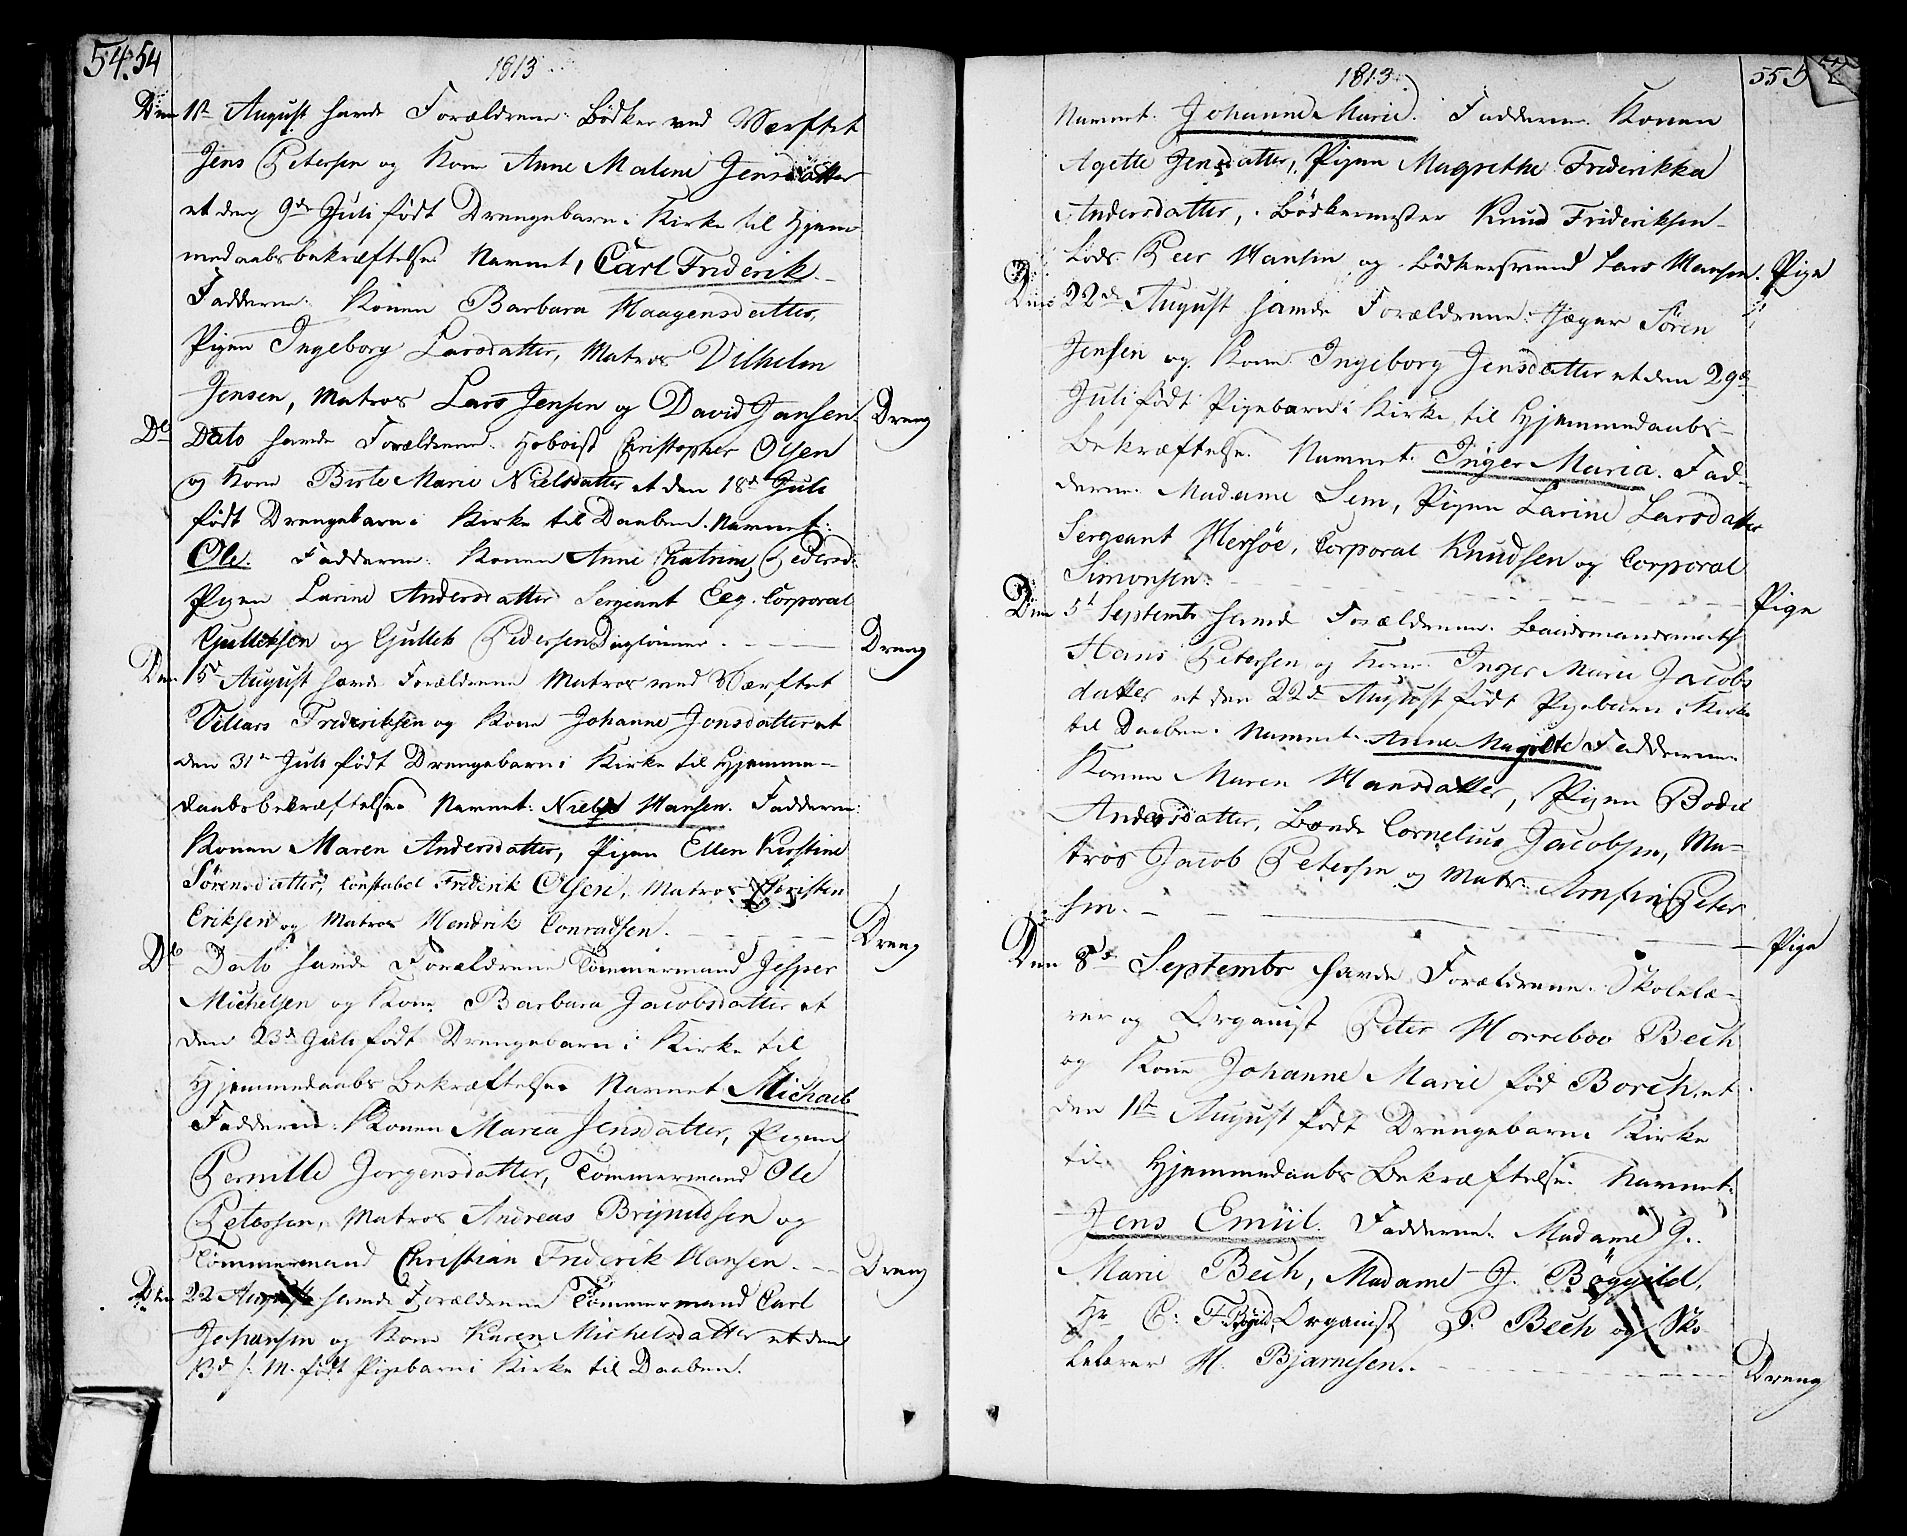 54. 54
1813
Den 1st August havde Forældrene: Bödker ved Værftet
Jens Petersen og Kone Anne Malene Jensdatter
et den 9de Juli født Drengebarn i Kirke til Hjem-
medaabsbekræftelse Navnet, Carl Friderik.
Faddere: Konen Barbara Haagensdatter,
Pigen Ingeborg Larsdatter, Matros Vilhelm
Jensen, Matros Lars Jensen og David Jansen. Dreng
Do Dato havde Forældrene. Hoboist Christopher Olsen
og Kone Birte Marie Nielsdatter et den 18de Juli
født Drengebarn i Kirke til Daaben. Navnet:
Ole. Fadderne: Konen Anne Chatrine Pedersd:
Pigen Larine Andersdatter Sergeant Eeg. Corporal
Gulliksen og Gullek Pedersen Daglönner. Dreng
Den 15d August havde Forældrene Matros ved Værftet
Villars Frideriksen og Kone Johanne Jonsdatter et
den 31te Juli født Drengebarn i Kirke til Hjemme-
daabsbekræftelse Navnet: Niels Hansen. Fadderne:
Konen Maren Andersdatter, Pigen Ellen Kirstine
Sørensdatter, Constabel Friderik Olsen, Matros Christen
Eriksen og Matros Hendrik Conradsen. Dreng
Do Dato havde Forældrene Tømmermand Jesper
Michelsen og Kone Barbara Jacobsdatter et
den 23d Juli født Drengebarn i Kirke til
Hjemmedaabs Bekræftelse Navnet Michael
Fadderne: Konen Maren Jensdatter, Pigen
Pernille Jorgensdatter, Tømmermand Ole
Petersen, Matros Andreas Brynildsen og
Tømmermand Christian Friderik Hansen. Dreng
Den 22 August havde Forældrene Tømmermand Carl
Johansen og Kone Karen Michelsdatter et den
13d s. M. født Pigebarn i Kirke til Daaben.
1813. 55
Navnet. Johanne Marie. Fadderne. Konen
Agette Jensdatter, Pigen Magrethe Friderikka
Andersdatter, Bödkermester Knud Frideriksen
Lods Peer Hansen og Bödkersvend Lars Hansen. Pige
Den 22de August havde Forældrene: Jæger Sören
Jensen og Kone Ingeborg Jensdatter et den 29d
Juli født Pigebarn i Kirke til Hjemmedaabs-
Bekræftelse. Navnet. Inger Maria. Fad-
derne. Madame Sem, Pigen Larine Larsdatter
Sergeant Hersöe, Corporal Knudsen og Corporal
Simonsen. Pige
Den 5t Septembr havde Forældrene. Baadsmandsmath
Hans Petersen og Kone. Inger Marie Jacobs
datter et den 22d August født Pigebarn i Kirke
til Daaben. Navnet. Anne Magrete Fadderne
Konen Maren Hansdatter, Pigen Bodil
Andersdatter, Bonde Cornelius Jacobsen, Ma-
tros Jacob Petersen og Matr: Arnfin Peter
sen. Pige
Den 8de Septembr havde Forældrene. Skolelæ-
rer og Organist Peter Horrebov Bech
og Kone Johanne Marie fød Borch, et
den 11te August født Drengebarn i Kirke
til Hjemmedaabs Bekræftelse Navnet.
Jens Emiil. Fadderne. Madame J.
Marie Bech, Madame J. Böggild,
Hr C: F Bögild, Organist P. Bech og Sko-
lelærer H. Bjarnesen. Dreng